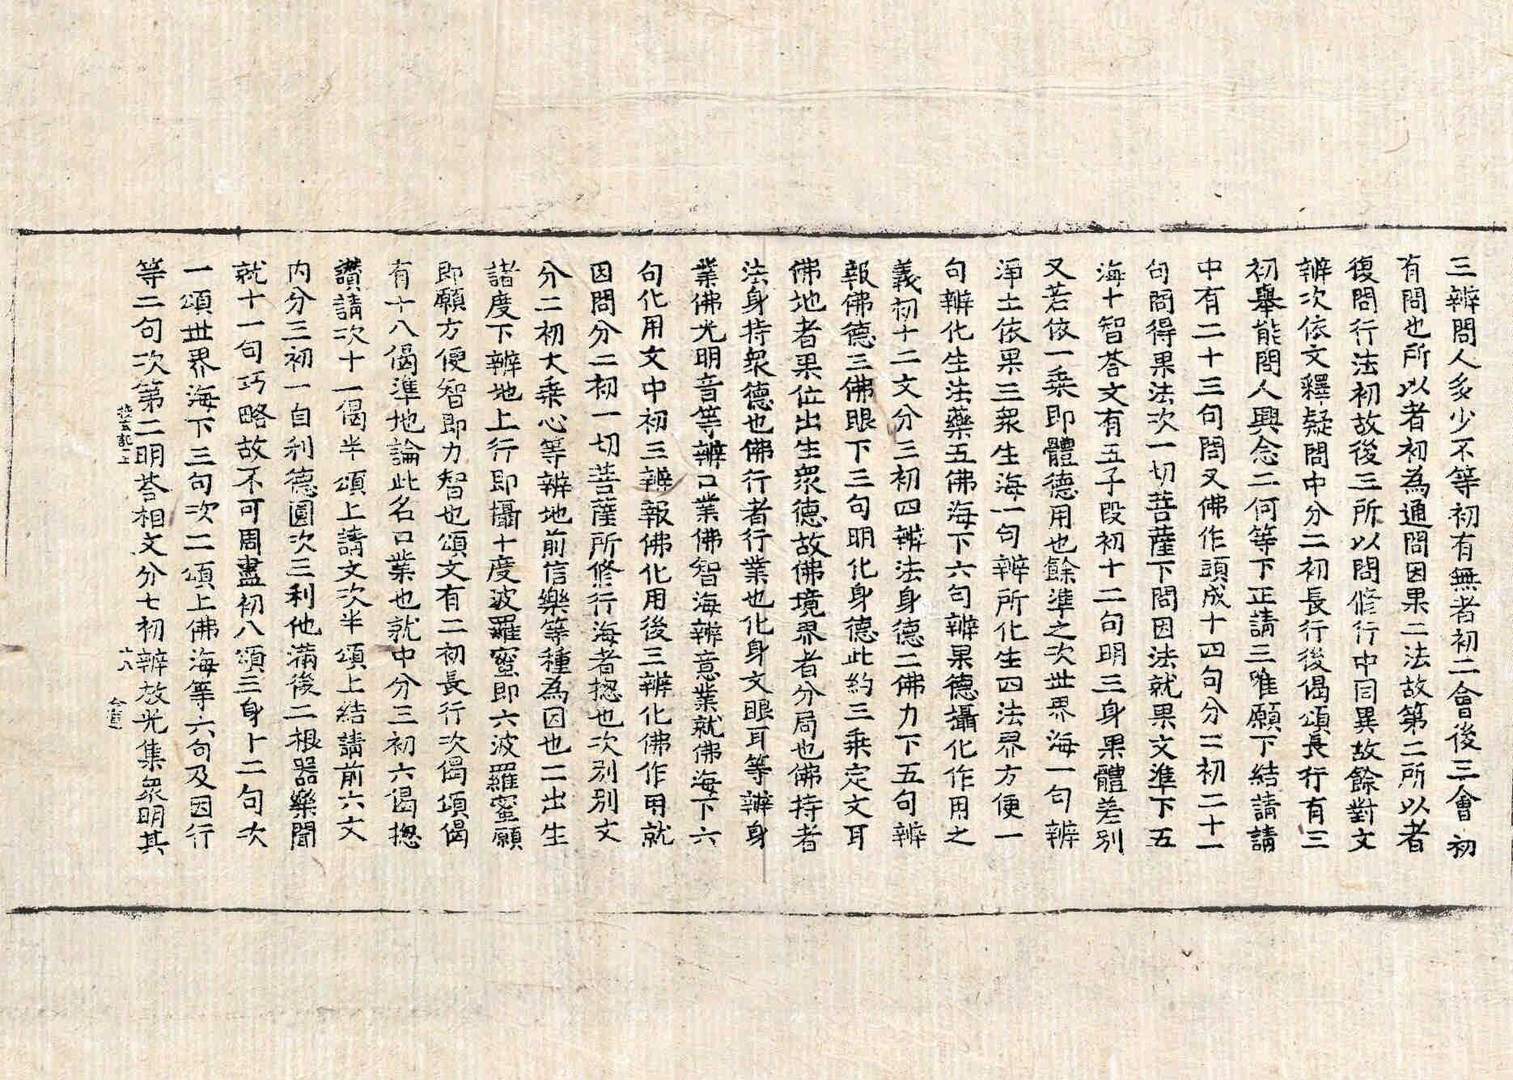 三辨問人多少不等初有無者初二會後三會初
有問也所以者初為通問因果二法故第二所以者
復問行法初故後三所以問修行中同異故餘對文
辨次依文釋疑問中分二初長行後偈頌長行有三
初舉能問人興念二何等下正請三唯願下結請請
中有二十三句問又佛作頭成十四句分三初二十一
句問得果法次一切菩薩下問因法就果文準下五
海十智荅文有五子段初十二句明三身果體差別
又若依一乘即體德用也餘準之次世界海一句辨
淨土依果三衆生海一句辨所化生四法界方便一
句辨化生法藥五佛海下六句辨果德攝化作用之
義初十二文分三初四辨法身德二佛力下五句辨
報佛德三佛眼下三句明化身德此約三乘定文耳
佛地者果位出生衆德故佛境界者分局也佛持者
法身持衆德也佛行者行業也化身文眼耳等辨身
業佛光明音等辨口業佛智海辨意業就佛海下六
句化用文中初三辨報佛化用後三辨化佛作用就
因問分二初一切菩薩所修行海者捴也次別別文
分二初大乘心等辨地前信樂等種為因也二出生
諸度下辨地上行即攝十度波羅蜜即六波羅蜜願
即願方便智即力智也頌文有二初長行次偈頌偈
有十八偈準地論此名口業也就中分三初六偈捴
讚請次十一偈半頌上請文次半頌上結請前六文
內分三初一自利德圓次三利他滿後二根器樂聞
就十一句巧略故不可周盡初八頌三身卜二句次
一頌世界海下三句次二頌上佛海等六句及因行
等二句次第二明荅相文分七初辨放光集衆明其
六八